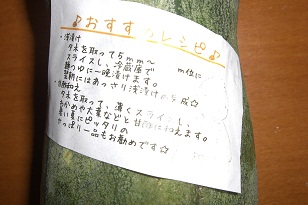 ♪おすすめレシピ♪
・浅漬け
タネを取って5mm〜 m位に
スライスし、冷蔵庫で
麺つゆに一晩漬けます。
翌朝にはあっさり浅漬けの完成☆
和え
タネを取って、薄くスライスし、
わかめや大葉などと甘酢に和えます。
暑い夏にピッタリの
さっぱり一品もお勧めです☆